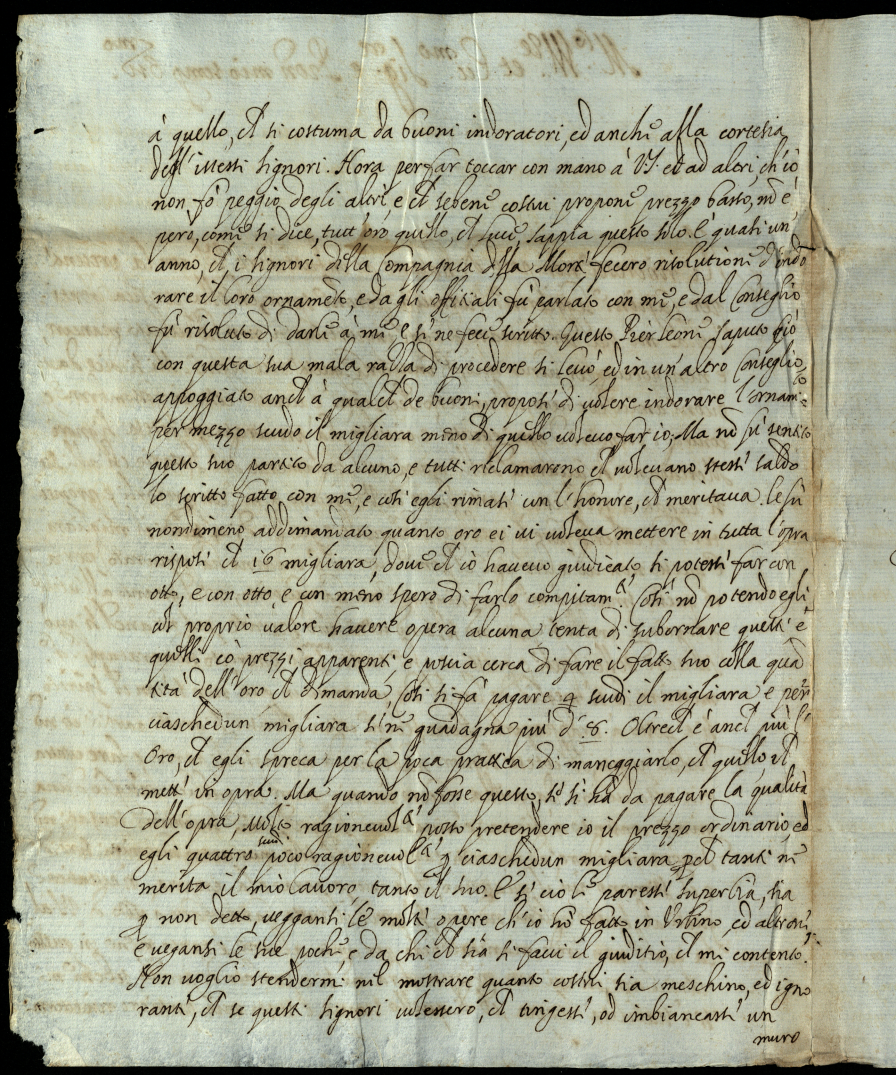 à quello, ch̃ si costuma da buoni indoratori, ed anchẽ alla cortesia
degl'istessi signori. Hora per far toccar con mano à V.S. et ad altri, ch'io
non fò peggio degli altri, e ch̃ sebenẽ costui proponẽ prezzo basso, nõ è
però, comẽ si dice, tutt'oro quello, ch̃ lucẽ, sappia questo solo. È quasi un'
anno, ch̃ i signori della Compagnia della Mortẽ fecero risolutionẽ d'indo
rare il loro ornamẽto, e da gli offitiali fù parlato con mẽ, e dal Conseglio
fù risoluto di darlo à mẽ, e sẽ ne fecẽ scritto. Questo Pier leonẽ saputo ciò
con questa sua mala razza di procedere si levò, ed in un'altro Conseglio
appoggiato anch̃ à qualch̃ de buoni, proposẽ di volere indorare l'ornam.to
per mezzo scudo il migliara meno di quello volevo far io, Ma nõ fù sentito
questo suo partito da alcuno, e tutti reclamarono ch̃ volevano stessẽ saldo
lo scritto fatto con mẽ, e così egli rimasẽ con l'honore, ch̃ meritava. Le fù
nondimeno addimandato quanto oro ei vi voleva mettere in tutta l'opra
risposẽ ch̃ 16 migliara, dovẽ ch̃ io havevo giudicato si potessẽ far con
otto, e con otto e con meno spero di farlo compitam.te Così nõ potendo egli
col proprio valore havere opera alcuna tenta di subornare questi è
quelli cõ prezzi apparenti e poscia cerca di fare il fatto suo colla quã
tità dell'oro ch̃ dimanda, Così si fà pagare 4 scudi il migliara e per
ciaschedun migliara sẽ nẽ guadagna più d'8. Oltrech̃ è anch̃ più l'
Oro, ch̃ egli spreca per la poca prattica di maneggiarlo, ch̃ quello ch̃
mettẽ in opra. Ma quando nõ fosse questo, sẽ si hà da pagare la qualità
dell'opra, molto ragionevol.te posso pretendere io il prezzo ordinario, ed
egli quattro scudi poco ragionevol.te ꝑ ciaschedun migliara, ꝑch̃ tanto nẽ
merita il mio lavoro, tanto il suo. E sẽ ciò lẽ paressẽ superbia, sia
ꝑ non detto, vegganti le moltẽ opere ch'io hò fatto in Urbino, ed altrovẽ
e vegansi le sue pochẽ, e da chi ch̃ sia si facci il giuditio, ch̃ mi contento.
Non voglio stendermi nel mostrare quanto costui sia meschino, ed igno
rantẽ, ch̃ se questi signori volessero, ch̃ tingessẽ, od imbiancassẽ un
muro